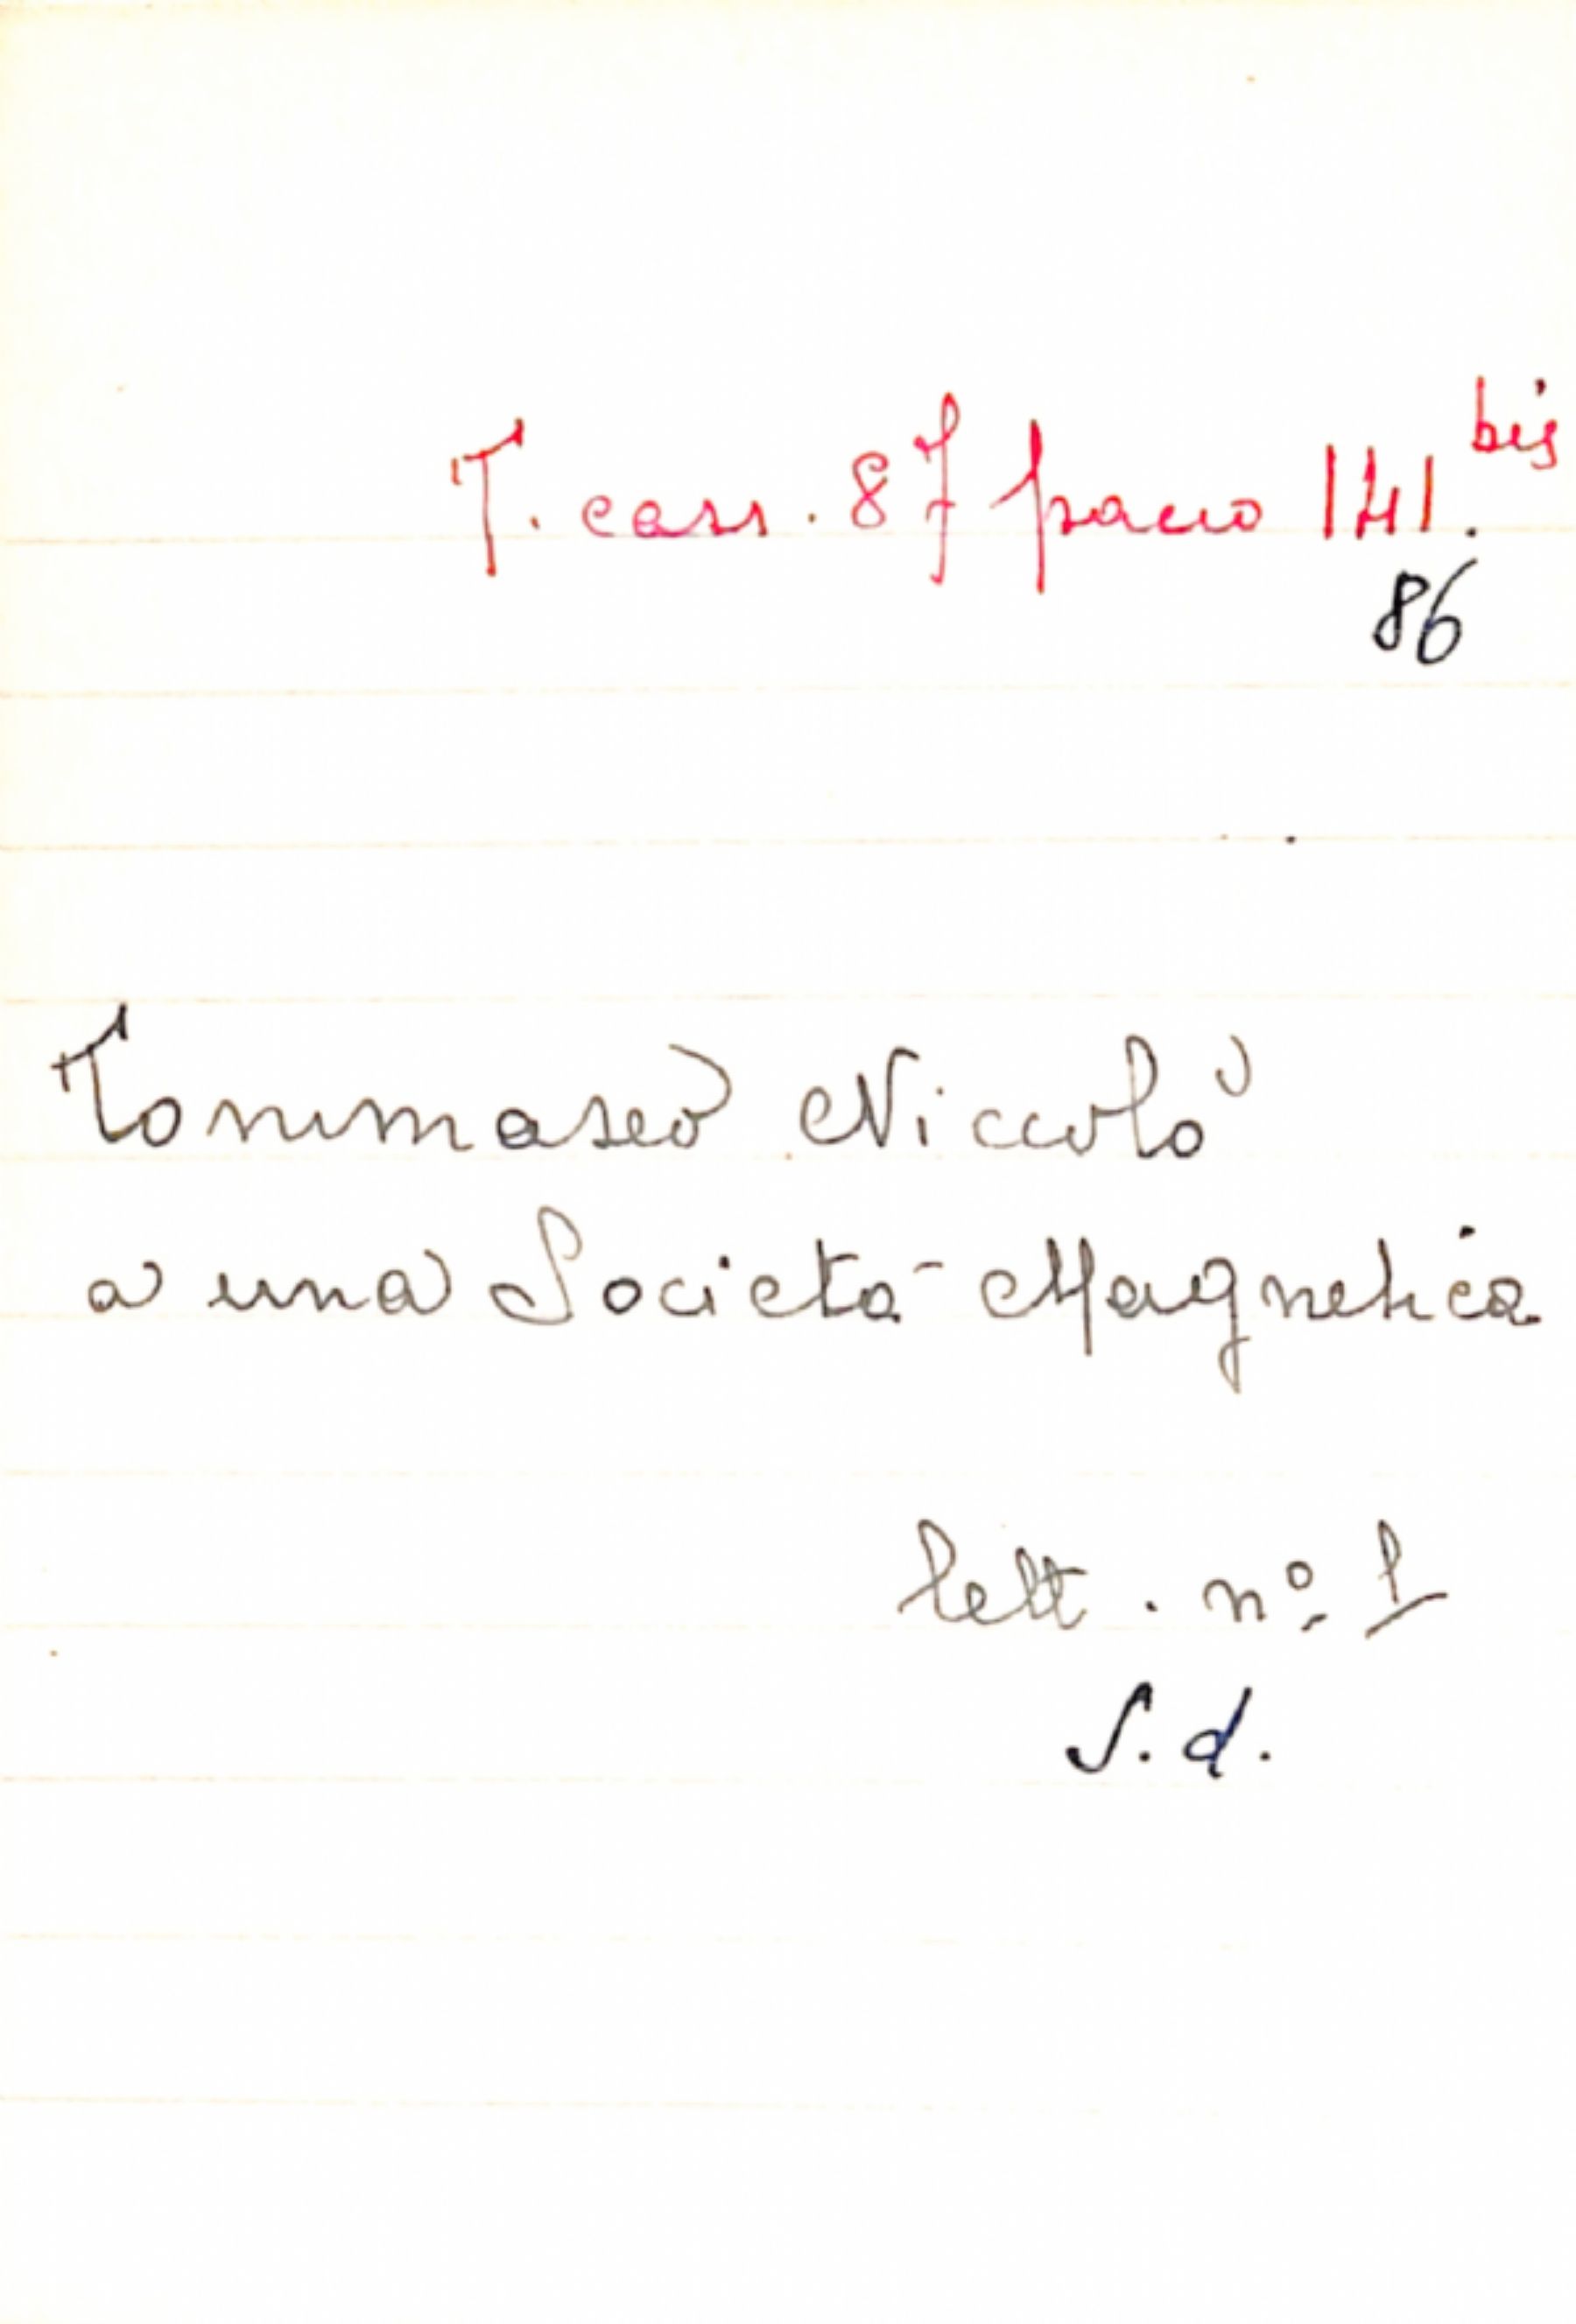 T. cass. 87 pacco 141. bis
86
Tommaseo Niccolò
a una Società Magnetica
lett. nº 1
S. d.